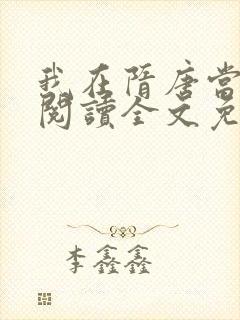 我在隋唐當
閱讀全文免
李鑫鑫